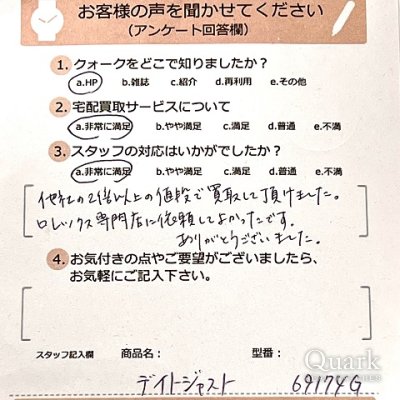 お客様の声を聞かせてください
（アンケート回答欄）
1. クォークをどこで知りましたか？
a.HP b.雑誌 c.紹介 d.再利用 e.その他
2. 宅配買取サービスについて
a.非常に満足 b.やや満足 c.満足 d.普通 e.不満
3. スタッフの対応はいかがでしたか？
a.非常に満足 b.やや満足 c.満足 d.普通 e.不満
他社の2倍以上の値段で買取して頂けました。
ロレックス専門店に依頼してよかったです。
ありがとうございました。
4. お気付きの点やご要望がございましたら、
お気軽にご記入下さい。
スタッフ記入欄 商品名： 型番：
デイトジャスト 69174G
Quark